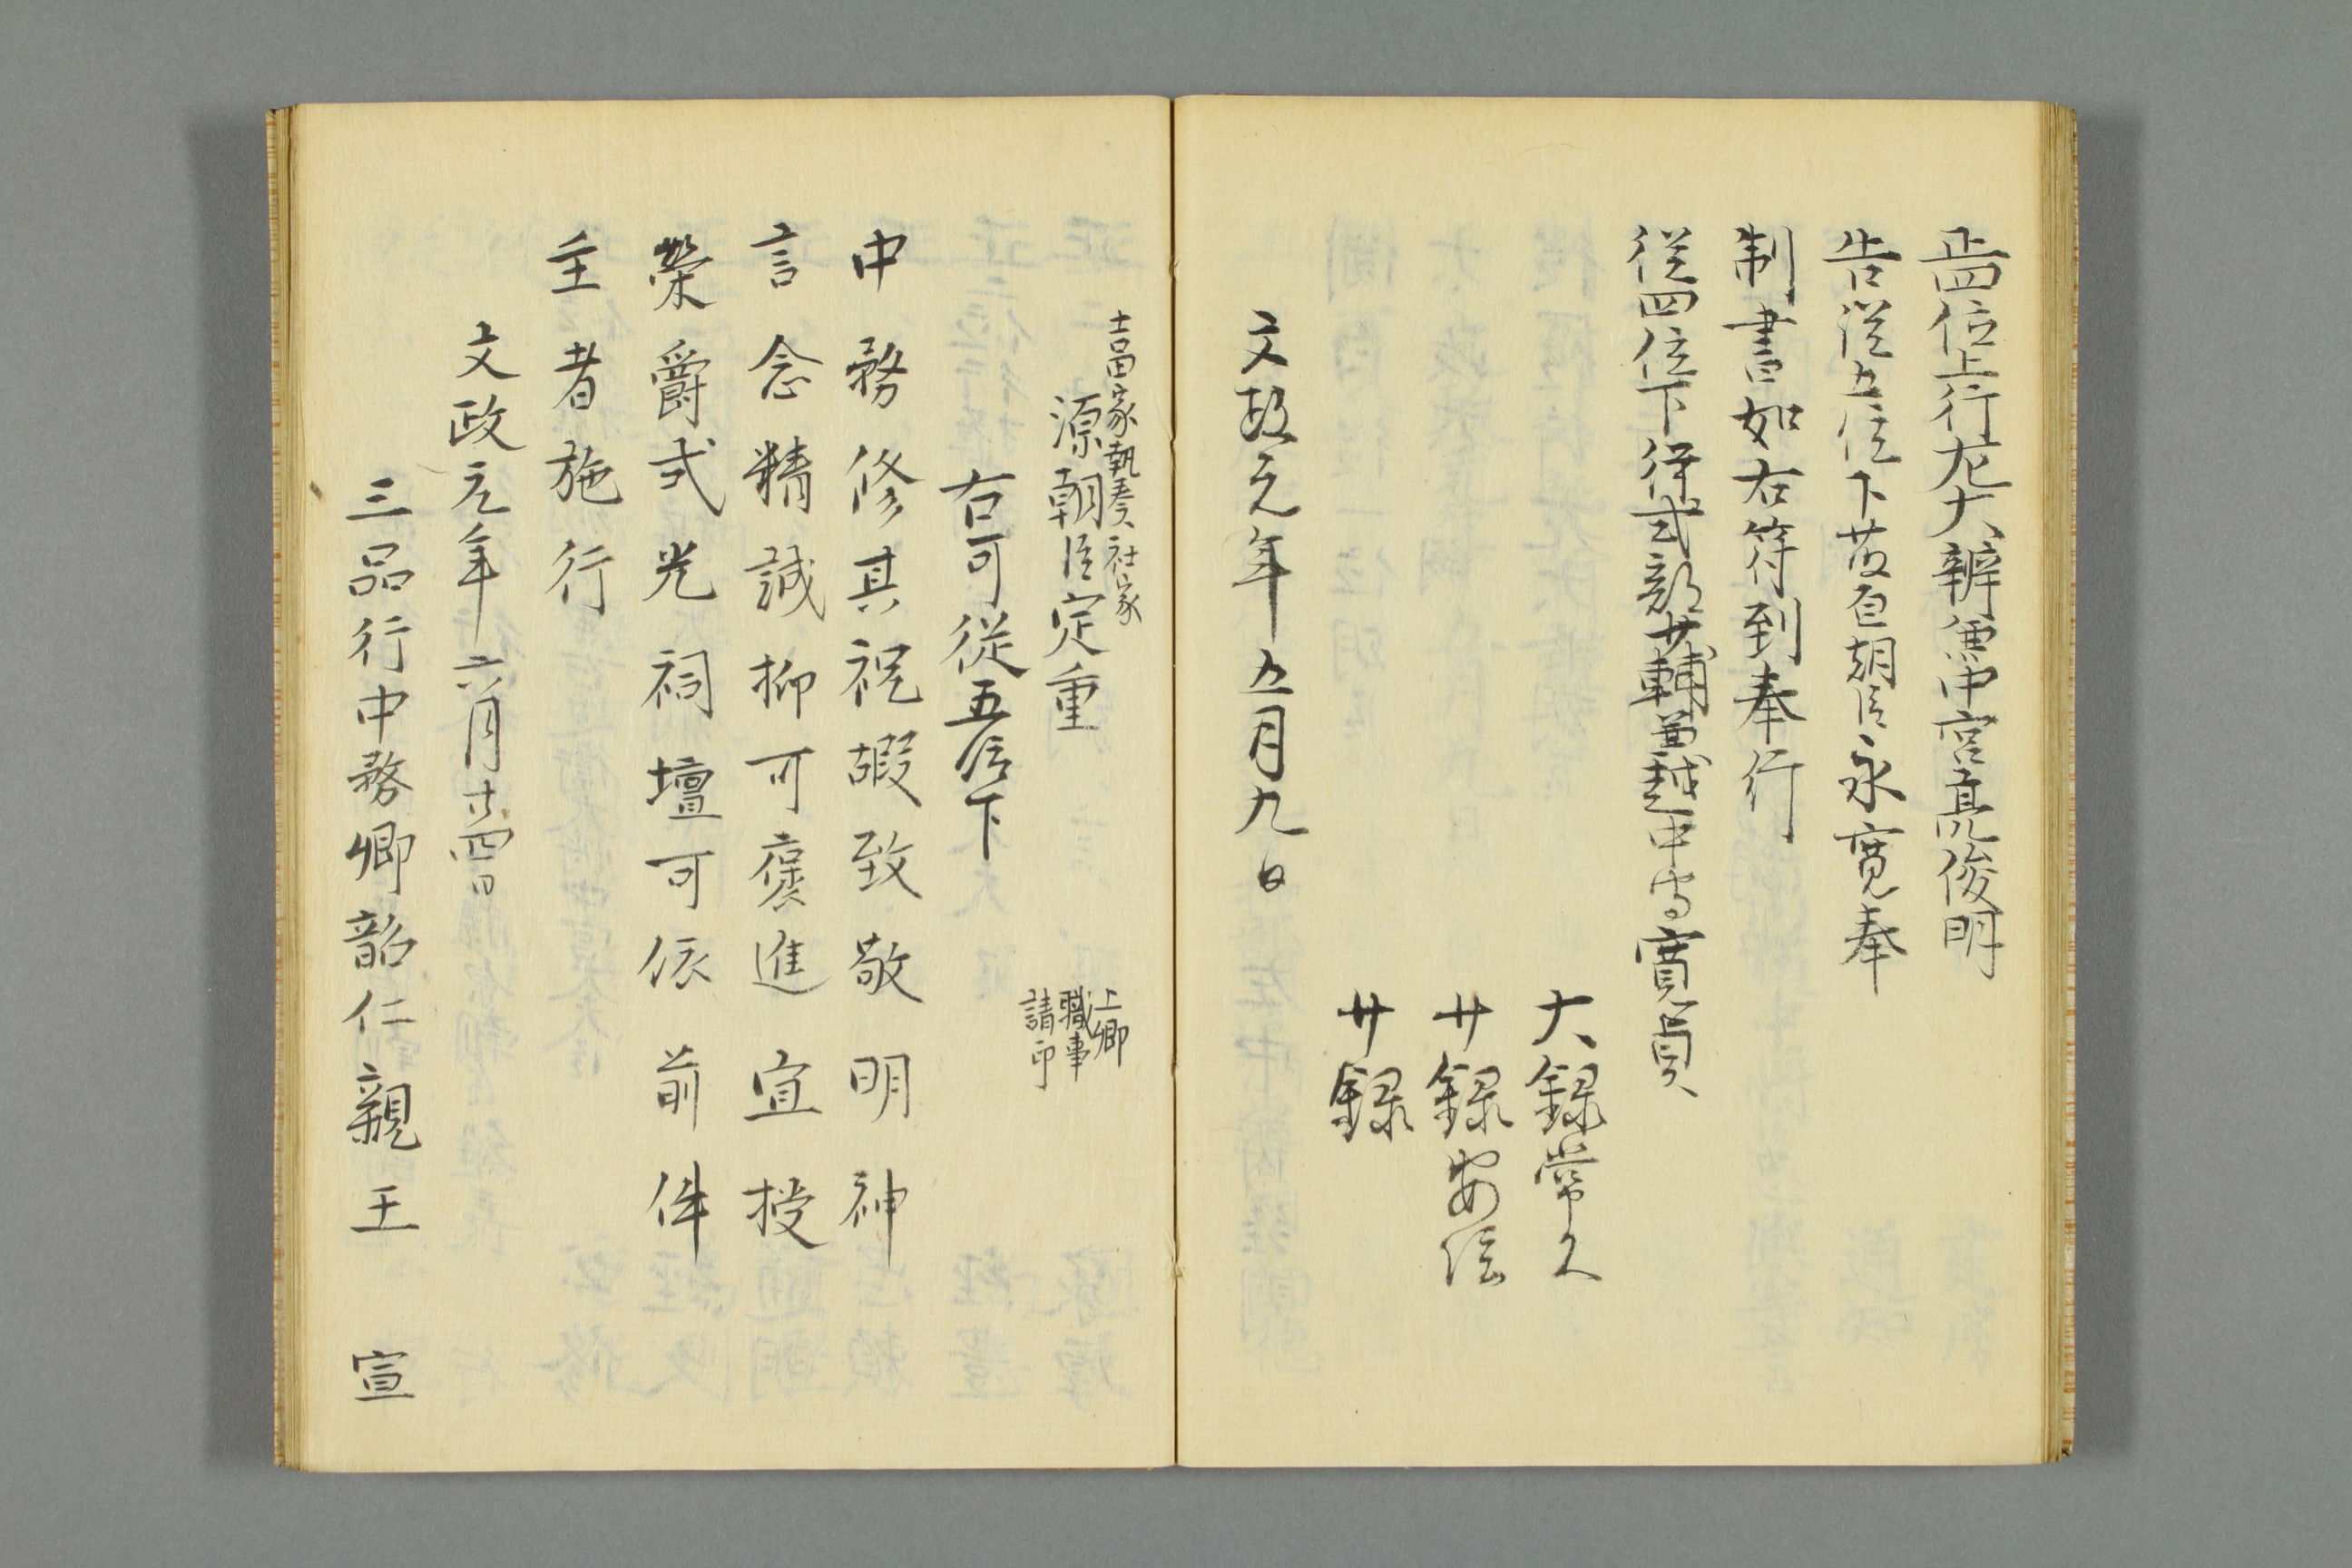 正四位上行左大辨兼中宮亮俊明
告従五位下荒木田朝臣永寛奉
制書如右符到奉行
従四位下行式部少輔兼越中守寛貞
大録常久
少録安信
少録
文政元年五月九日
吉田家執奏社家
源朝臣定重
上卿
職事
請印
右可従五位下
中務修其祝嘏致敬明神
言念精誠抑可褒進宜授
榮爵式光祠壇可依前件
主者施行
文政元年六月廿四日
三品行中務卿韶仁親王 宣